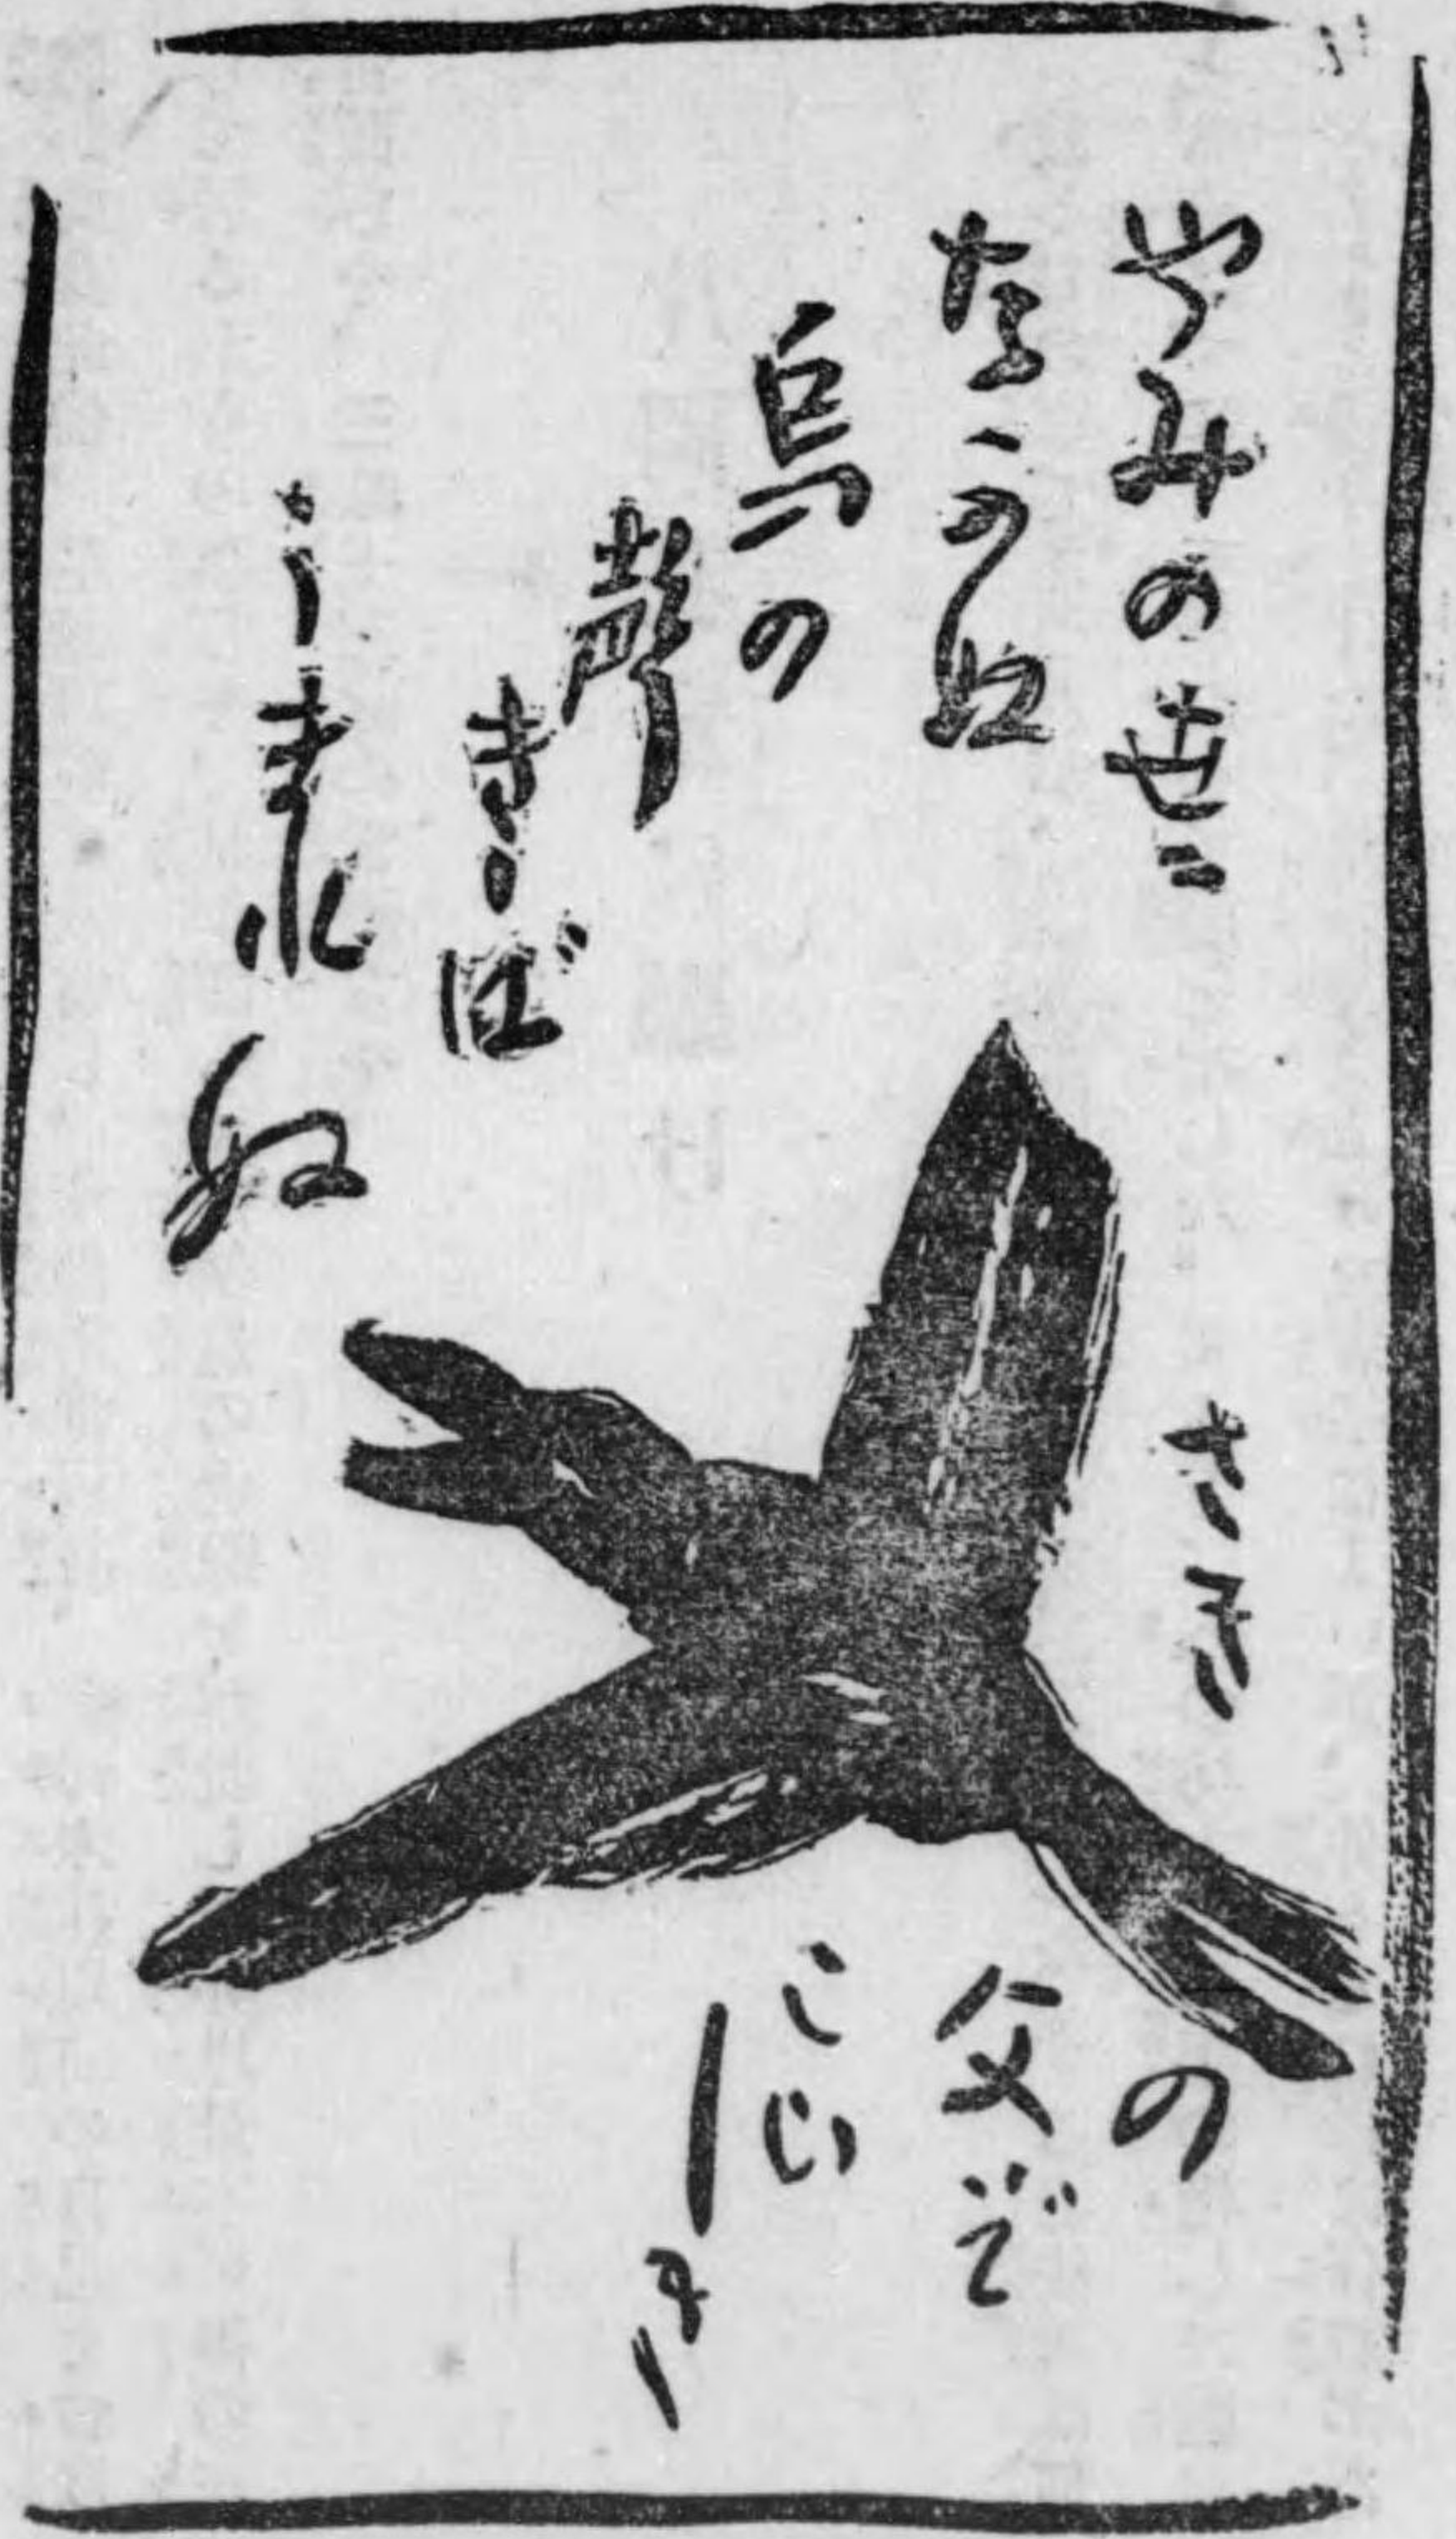 やみの世ニ
なかぬ
烏の
聲
きけば
うまれぬ
さき
の
父ぞ
こひ
しき